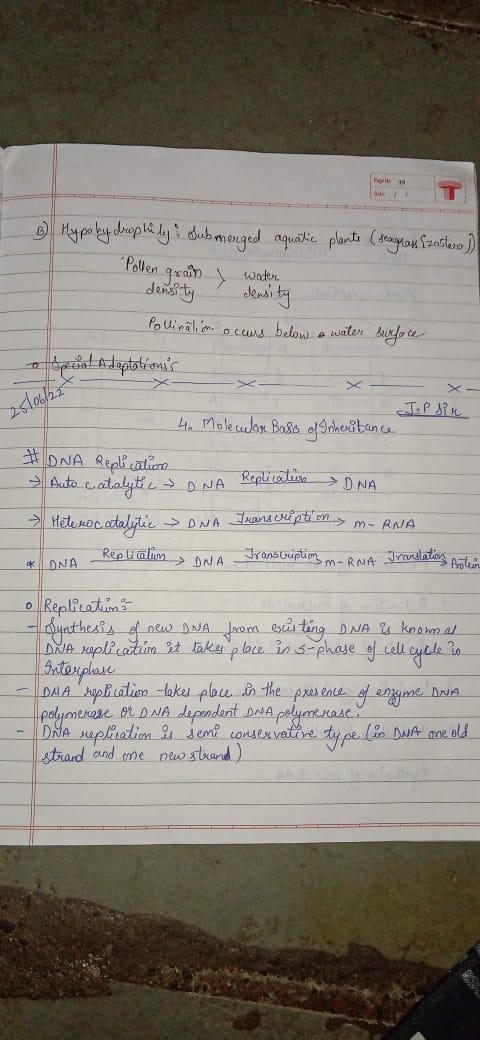 Page No. 39
Date: / /
B) Hypohydrophily : Submerged aquatic plants (seagrass [zostera])
Pollen grain > water
density density
Pollination occurs below a water surface
o Special Adaptations:
25/06/22
J.P Sir
4. Molecular Basis of Inheritance
# DNA Replication
→ Auto catalytic → DNA Replication → DNA
→ Heterocatalytic → DNA Transcription → m-RNA
* DNA Replication → DNA Transcription → m-RNA Translation → Protein
o Replication:-
- Synthesis of new DNA from existing DNA is known as
DNA replication it takes place in S-phase of cell cycle in
Interphase
- DNA replication takes place in the presence of enzyme DNA
polymerase or DNA dependent DNA polymerase.
- DNA replication is semi conservative type (in DNA one old
strand and one new strand)